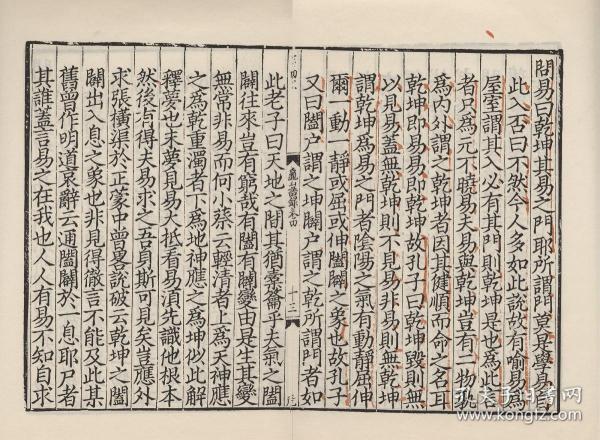 問易曰乾坤其易之門耶所謂門莫是學易
此入否曰不然今人多如此說故有喻易爲
屋室謂其入必有其門則乾坤是也爲此
者只爲元不曉易夫易與乾坤豈有二物孰
爲內外謂之乾坤者因其健順而命之名耳
乾坤即易易即乾坤故孔子曰乾坤毀則無
以見易蓋無乾坤則不見易非易則無乾坤
謂乾坤爲易之門者陰陽之氣有動靜屈伸
爾一動一靜或屈或伸闔闢之象也故孔子
又曰闔户謂之坤闢户謂之乾所謂門者如
龜山語錄卷四
十三
此老子曰天地之間其猶橐籥乎夫氣之闔
闢往來豈有窮哉有闔有闢變由是生其變
無常非易而何小蔡云輕清者上爲天神應
之爲乾重濁者下爲地神應之爲坤似此解
釋夢也未夢見易大抵看易須先識他根本
然後有得夫易求之吾身斯可見矣豈應外
求張橫渠於正蒙中曾畧說破云乾坤之闔
闢出入息之象也非見得徹言不能及此某
舊曾作明道哀辭云通闔闢於一息耶尸者
其誰蓋言易之在我也人人有易不知自求
孔夫子旧书网
www.kongfz.com